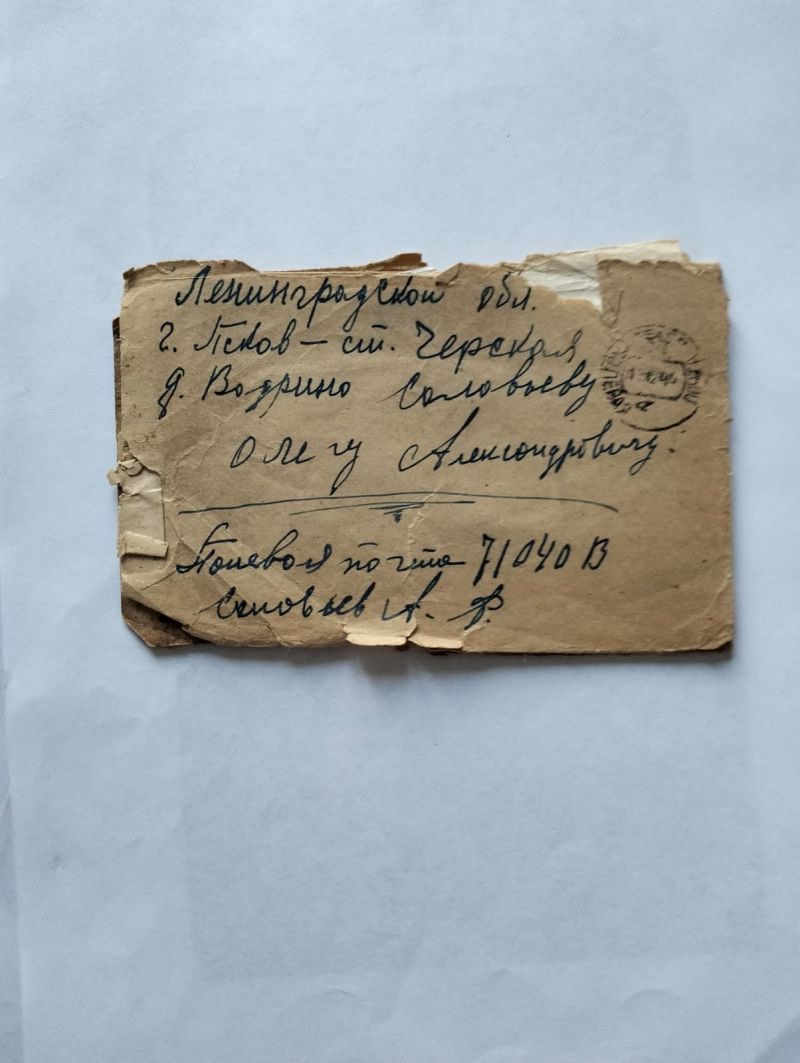 Ленинградской обл.
г. Псков - ст. Черская
д. Водрино Соловьеву
Олегу Александровичу.
Полевая почта 71040 В
Соловьев А. Ф.